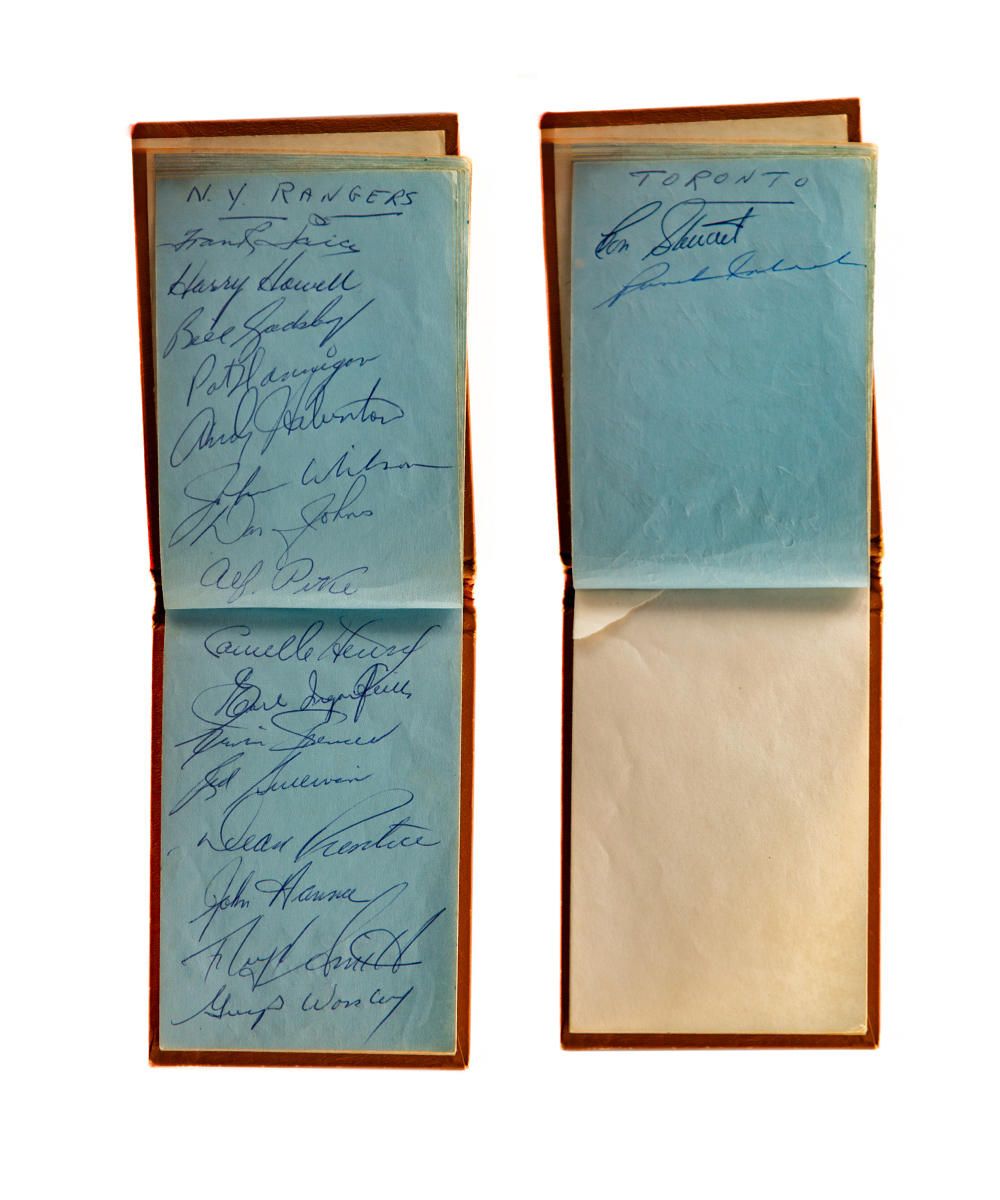 N.Y. RANGERS
Frank Paice
Harry Howell
Bill Gadsby
Pat Hannigan
Andy Hebenton
John Wilson
Don Johns
Alf. Pike
Camille Henry
Earl Ingarfield
Irvin Spencer
Red Sullivan
Dean Prentice
John Hanna
Floyd Smith
Gump Worsley
TORONTO
Ron Stewart